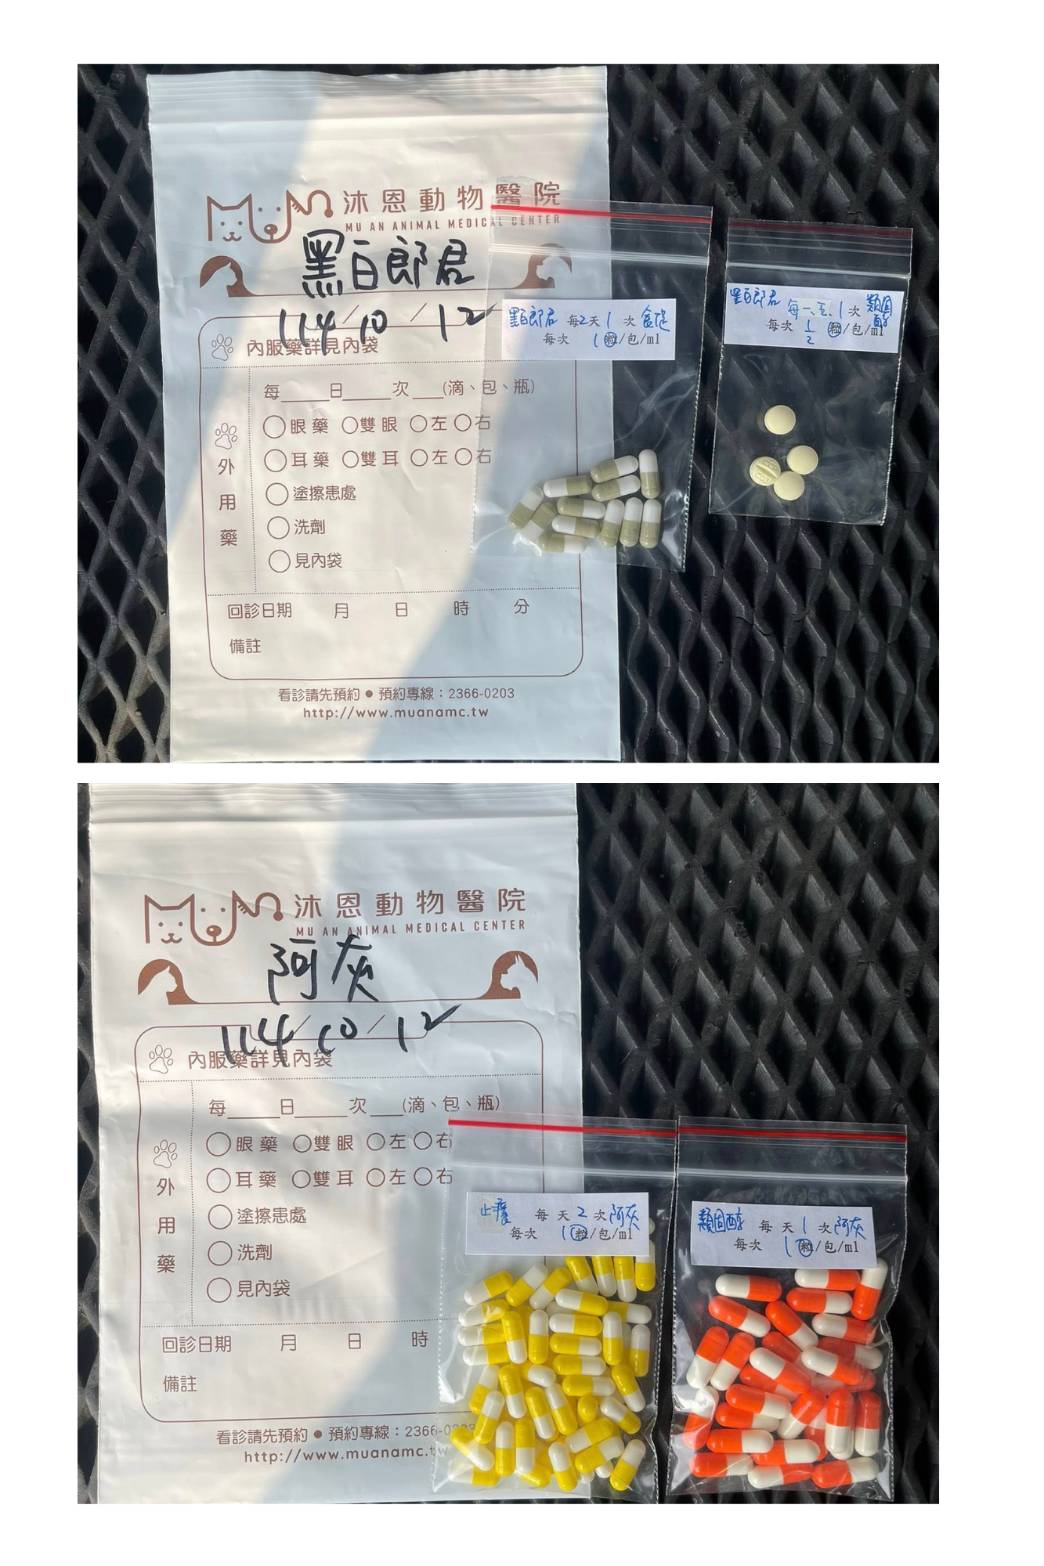 沐恩動物醫院
MU AN ANIMAL MEDICAL CENTER
黑白郎君
114/10/12
內服藥詳見內袋
每 日 次 (滴、包、瓶)
外用藥
眼藥 雙眼 左 右
耳藥 雙耳 左 右
塗擦患處
洗劑
見內袋
回診日期 月 日 時 分
備註
看診請先預約●預約專線：2366-0203
http://www.muanamc.tw
黑白郎君 每2天1次
每次 1粒/包/ml
黑白郎君 1次 類固醇
每次 1/2 粒/包/ml
沐恩動物醫院
MU AN ANIMAL MEDICAL CENTER
阿灰
114/10/12
內服藥詳見內袋
每 日 次 (滴、包、瓶)
外用藥
眼藥 雙眼 左 右
耳藥 雙耳 左 右
塗擦患處
洗劑
見內袋
回診日期 月 日 時
備註
看診請先預約●預約專線：2366-0
http://www.muanamc.tw
止癢 每天2次 阿灰
每次 1粒/包/ml
類固醇 每天1次 阿灰
每次 1粒/包/ml